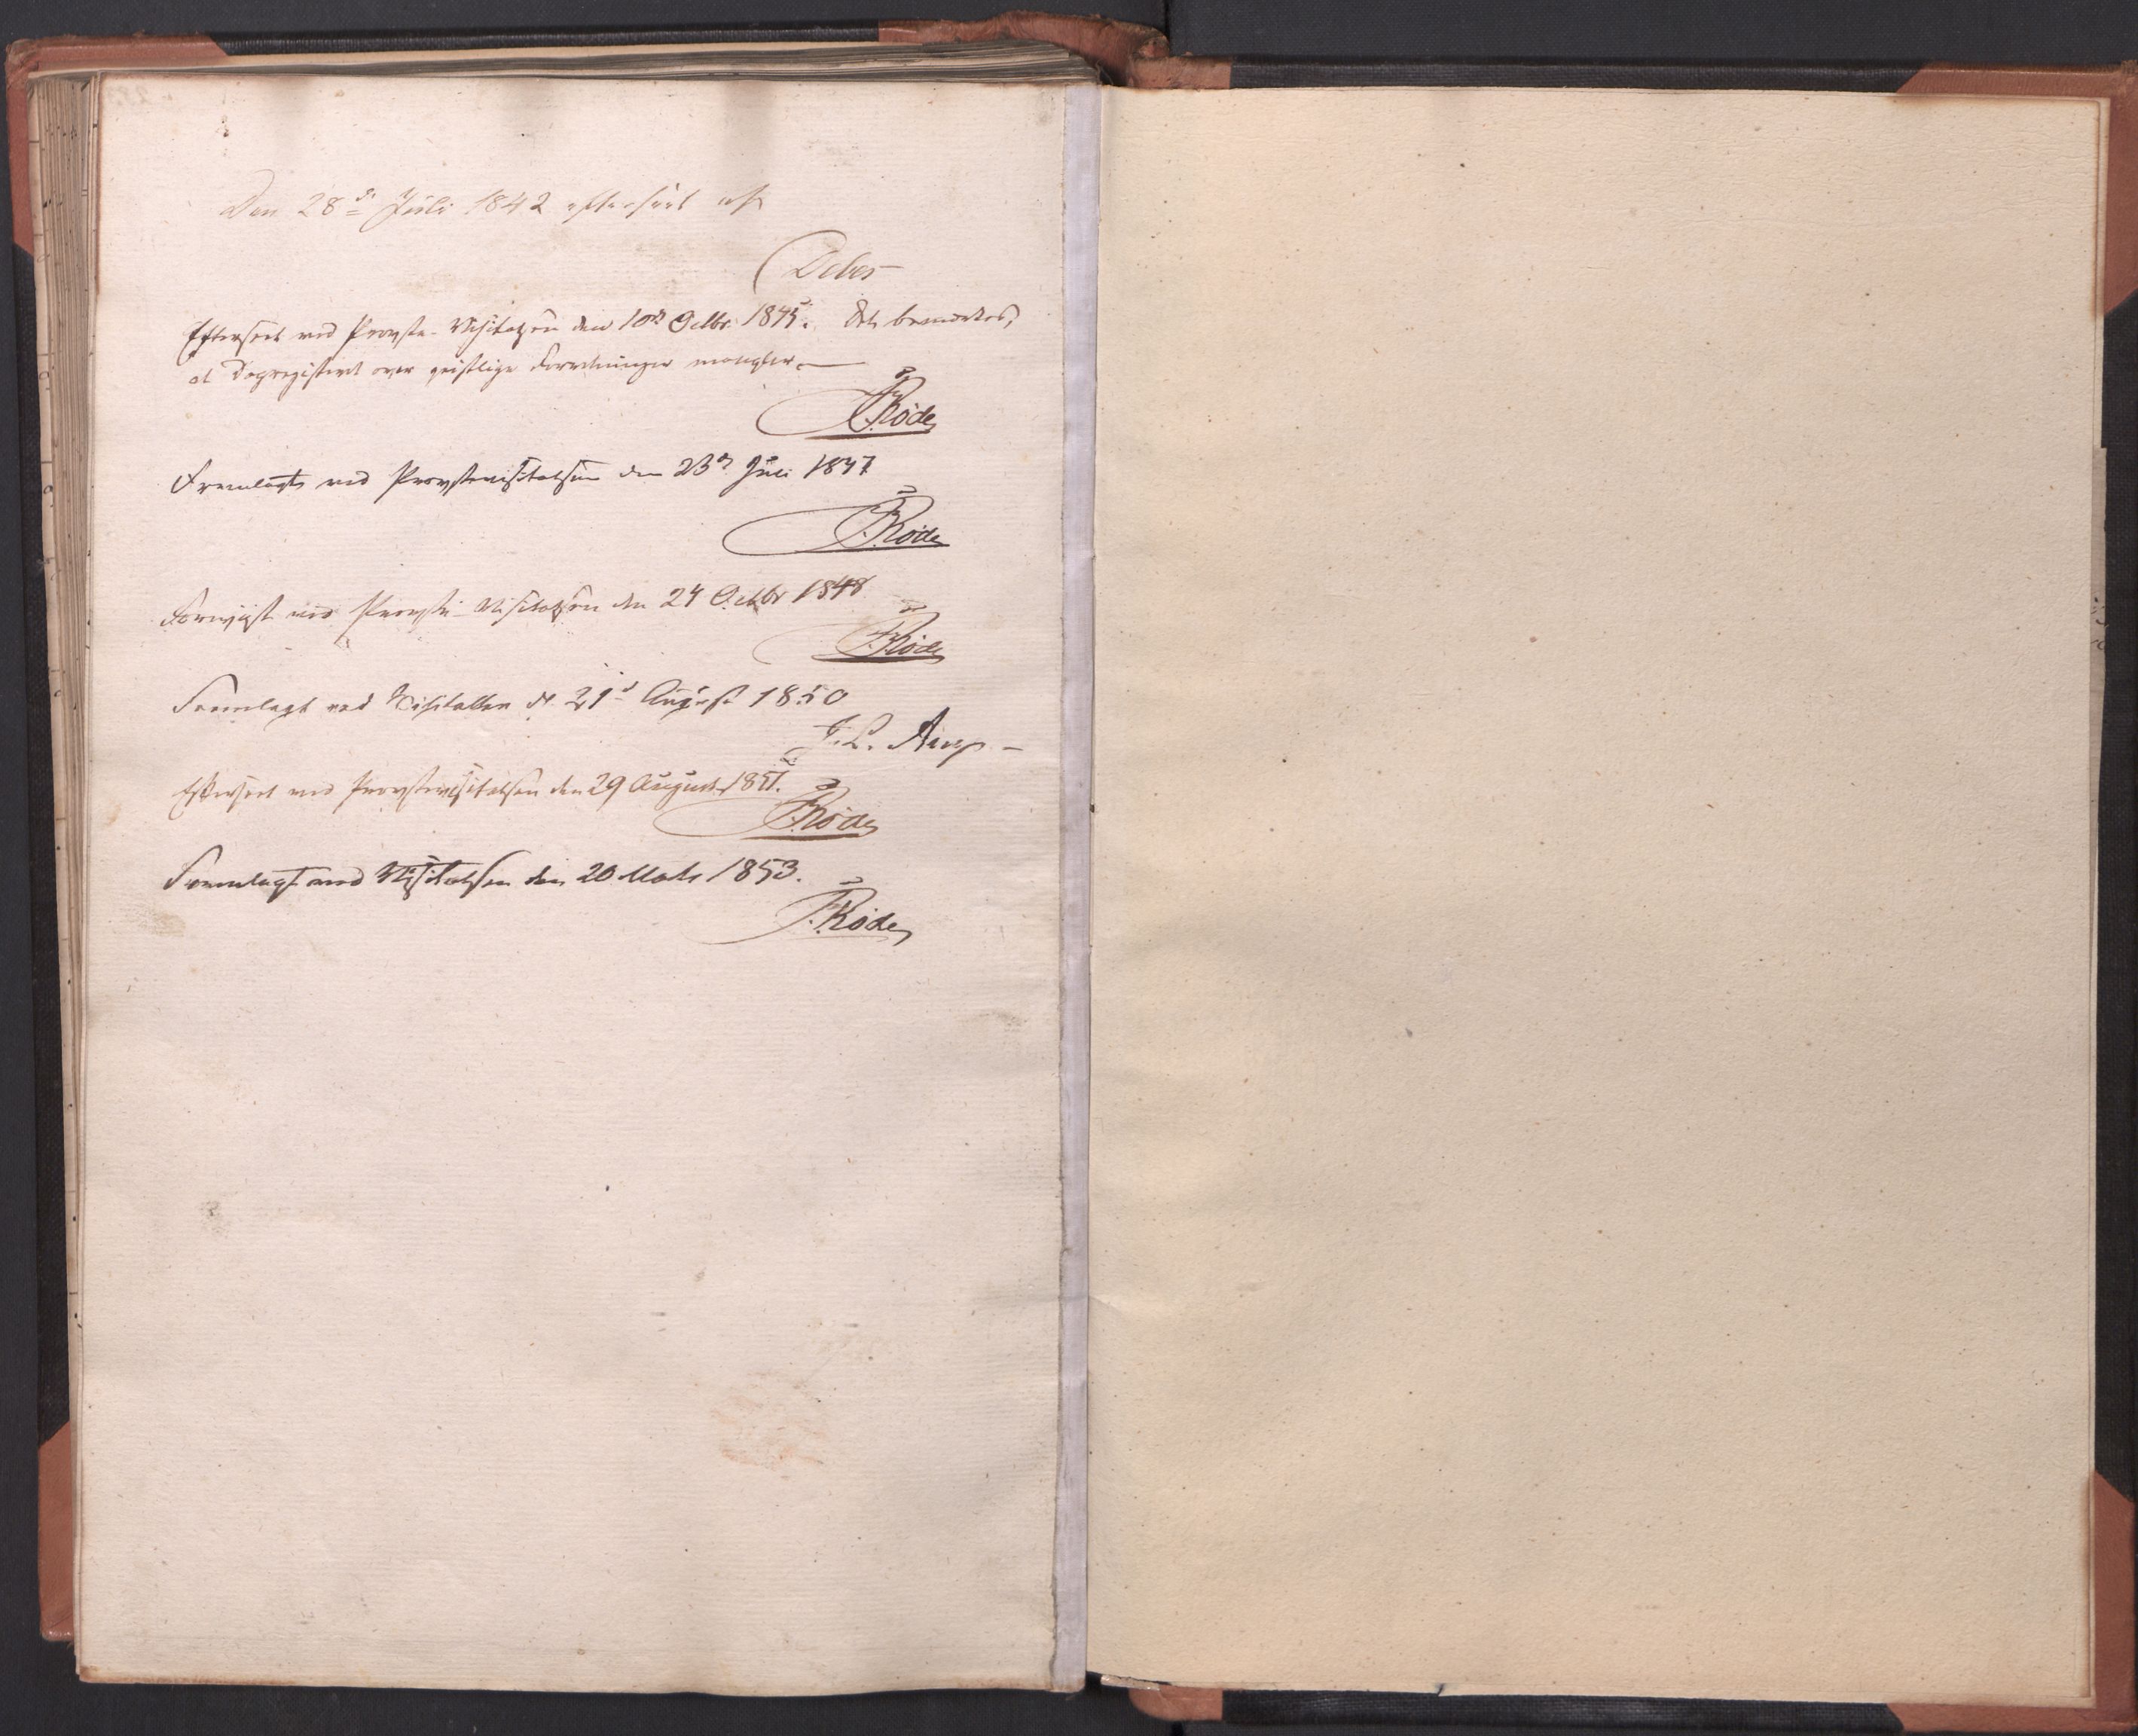 Den 28de Juli 1842 efterseet af
Debes
Efterseet ved Provste-Visitatsen den 10de Octbr. 1845. Det bemærkes,
at Dagregisteret over geistlige Forretninger mangler.
F. Rode
Fremlagt ved Provstevisitatsen den 23de Juli 1847
F. Rode
Foreviist ved Provste-Visitatsen den 24 Octbr 1848
F. Rode
Fremlagt ved Visitatsen d. 21d August 1850
J. L. Arup
Efterseet ved Provstevisitatsen den 29 August 1851.
F. Rode
Fremlagt ved Visitatsen den 20 Marts 1853.
F. Rode